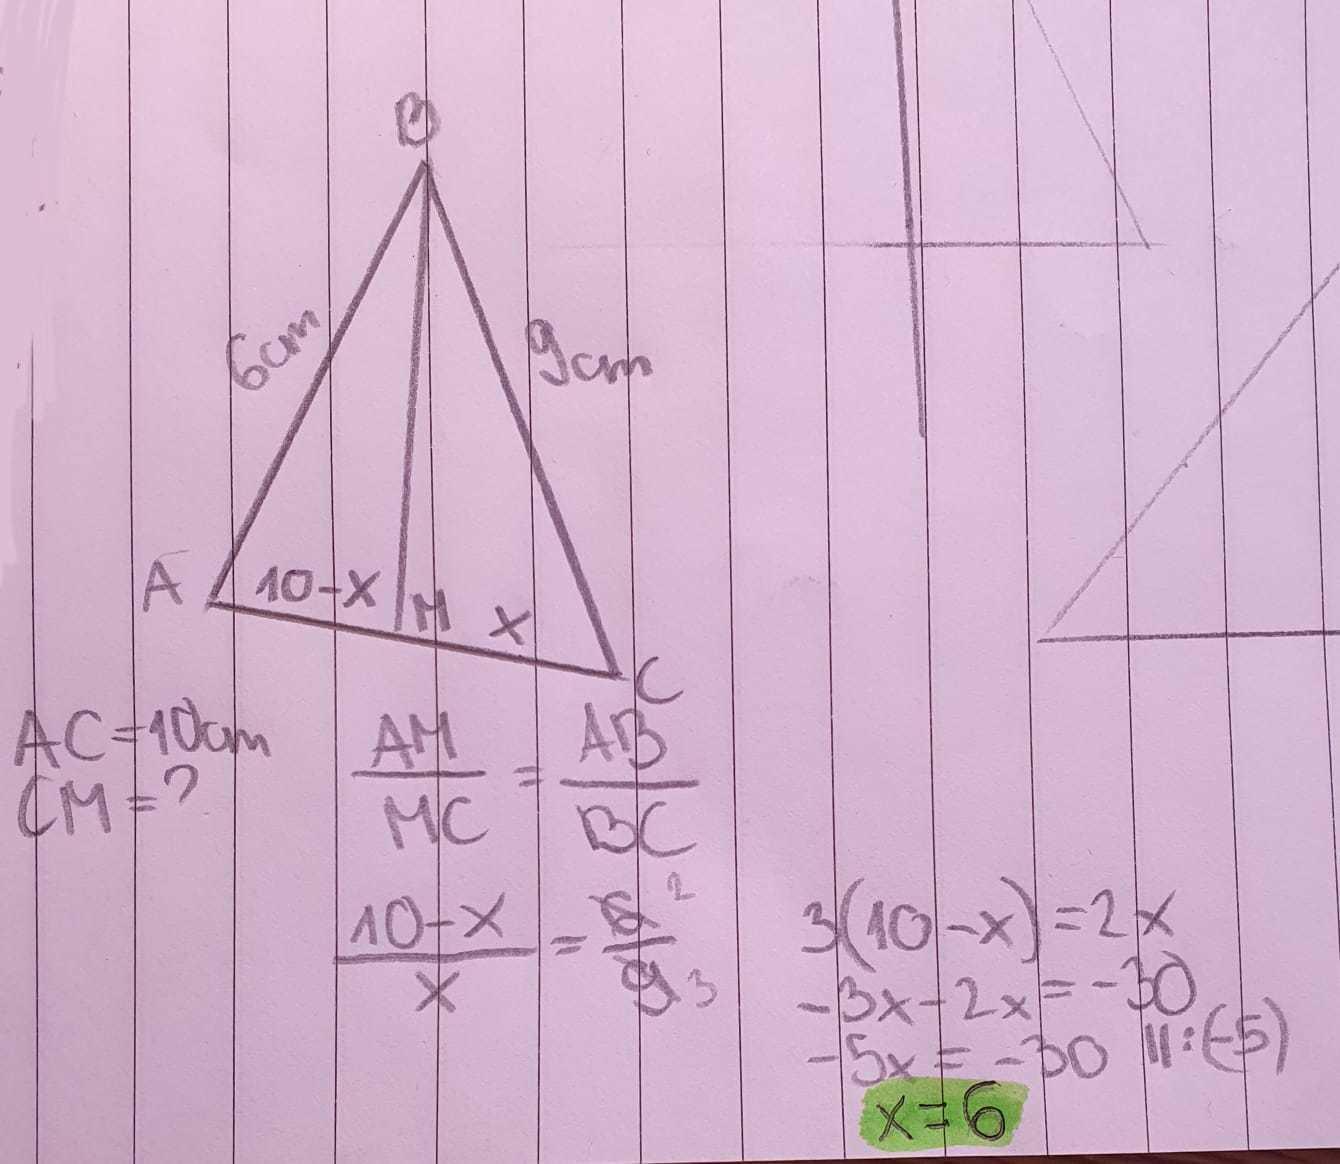 B
6cm
9cm
A
10-x
M
x
C
AC=10cm
CM=?
AM/MC = AB/BC
10-x/x = 6 2/9 3
3(10-x)=2x
-3x-2x=-30
-5x=-30 ||:(-5)
x=6